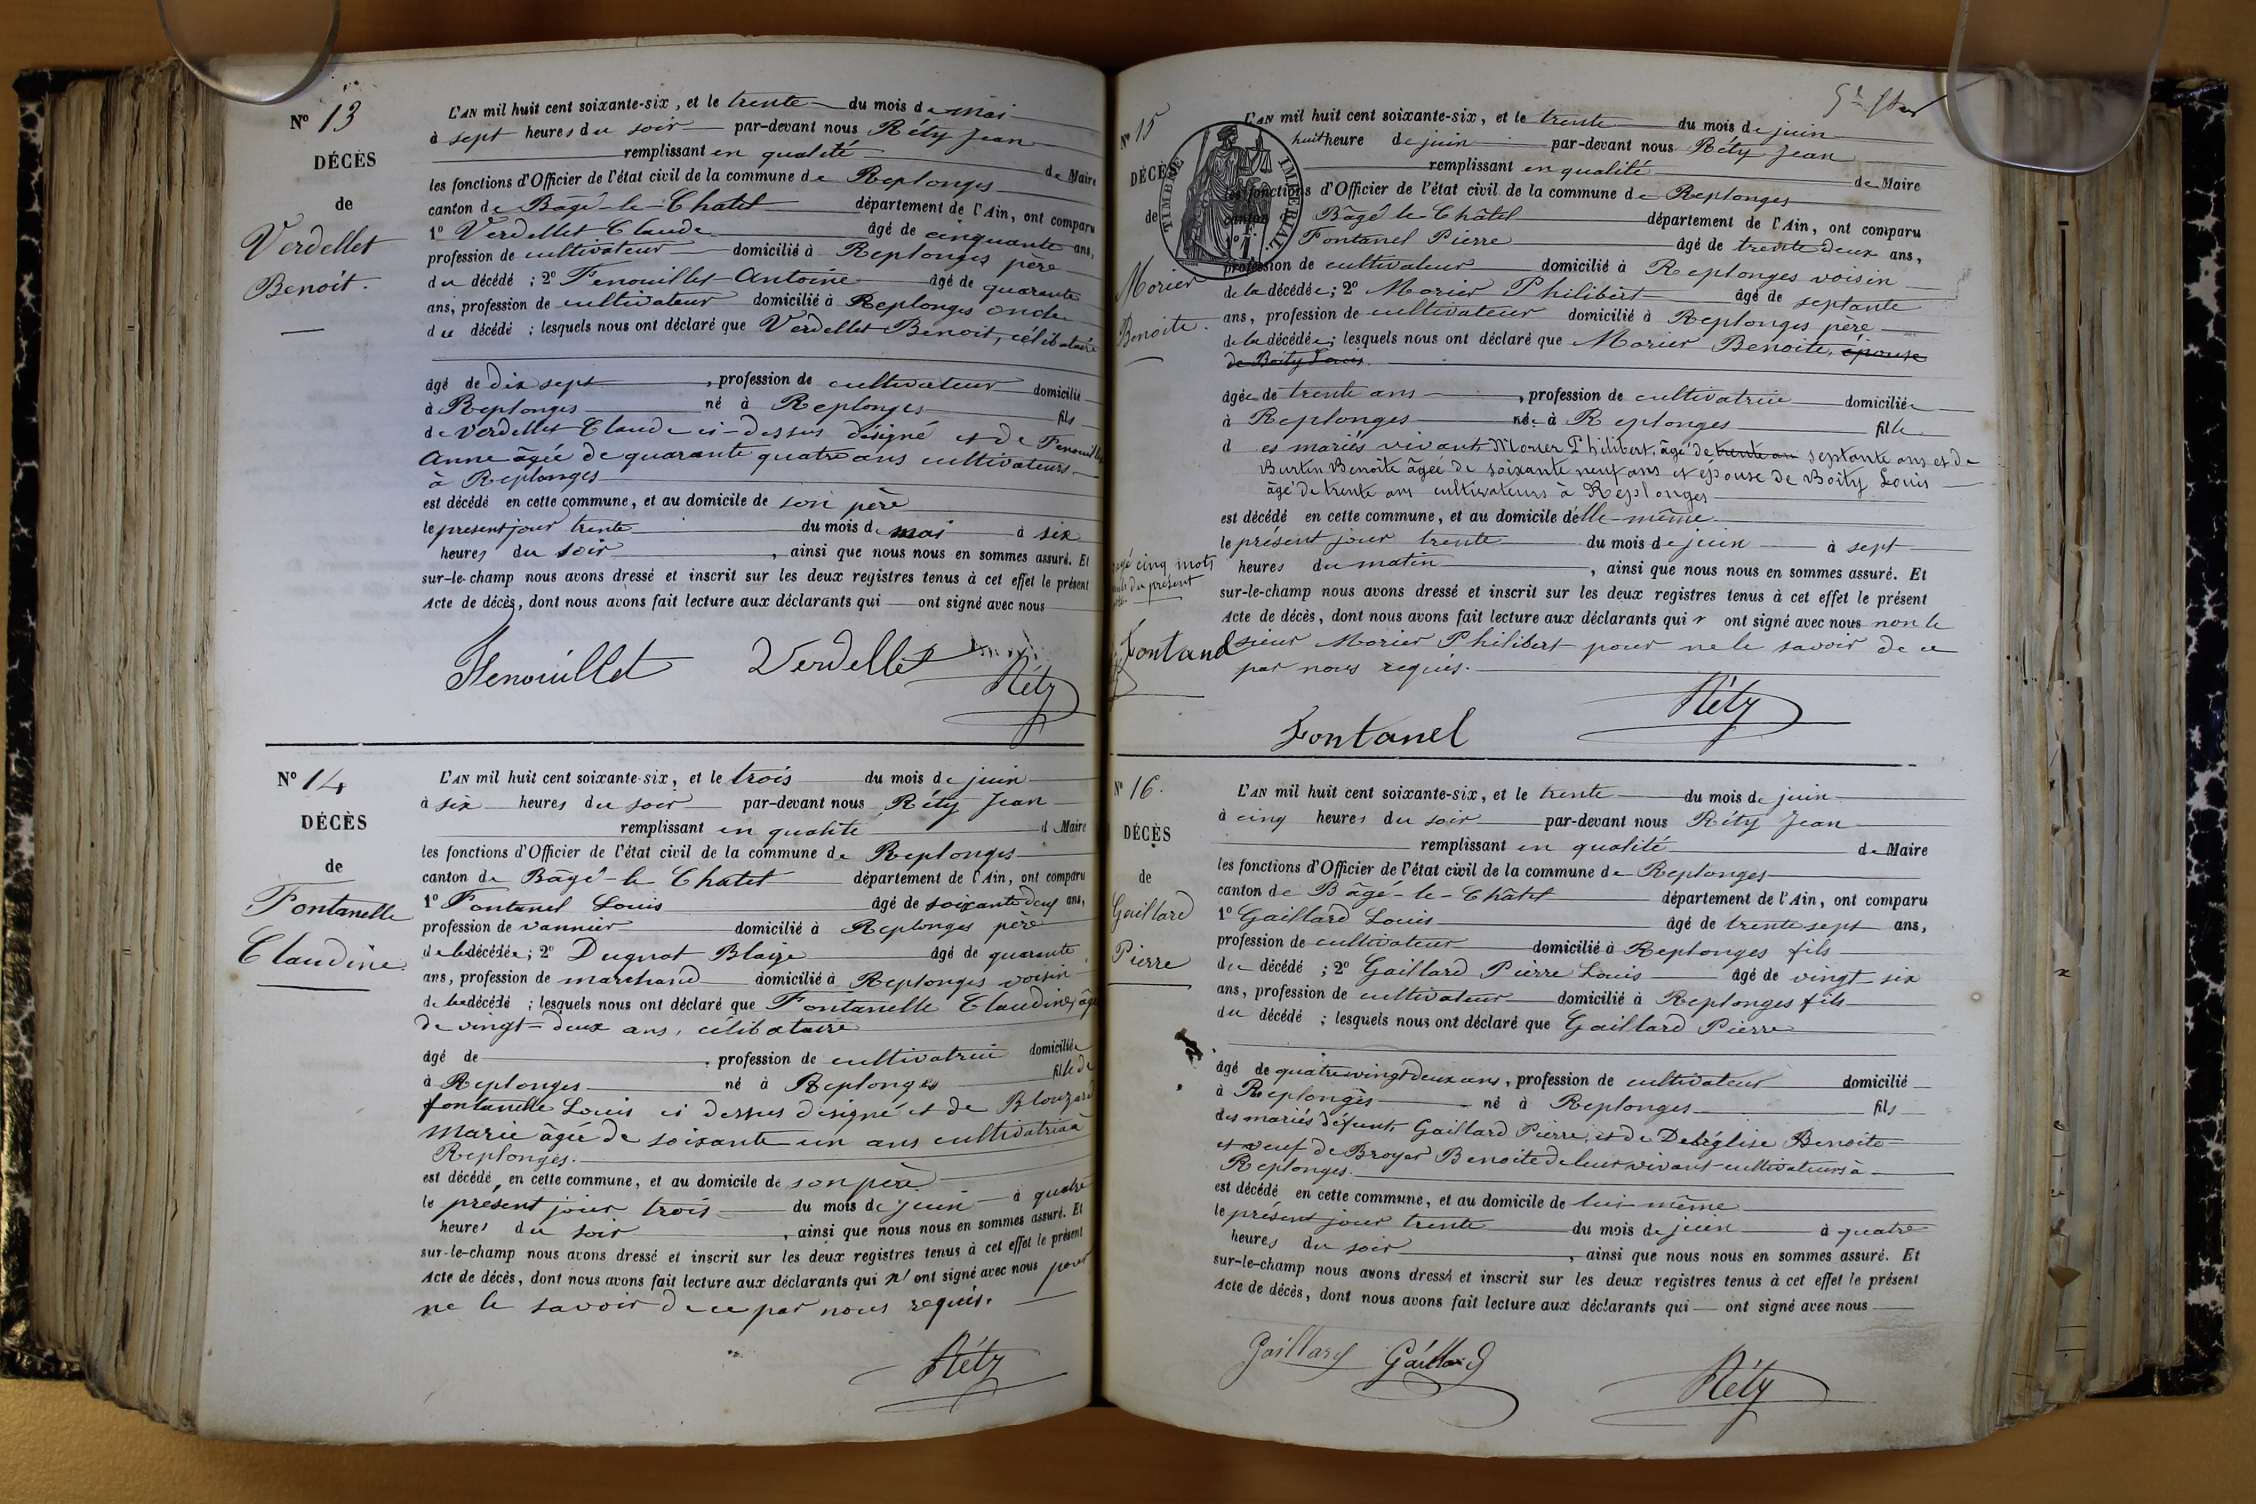 N° 13
DÉCÈS
de
Verdellet
Benoit.
L'AN mil huit cent soixante-six, et le trente du mois de mai
à sept heures du soir par-devant nous Réty Jean
remplissant en qualité de Maire
les fonctions d'Officier de l'état civil de la commune de Replonges
canton de Bâgé-le-Chatel département de l'Ain, ont comparu
1° Verdellet Claude âgé de cinquante ans,
profession de cultivateur domicilié à Replonges père
du décédé ; 2° Fenouillet Antoine âgé de quarante
ans, profession de cultivateur domicilié à Replonges oncle
du décédé ; lesquels nous ont déclaré que Verdellet Benoit, célibataire
âgé de dix sept , profession de cultivateur domicilié
à Replonges né à Replonges fils
de Verdellet Claude ci-dessus désigné et de Fenouillet
Anne âgée de quarante quatre ans cultivateurs
à Replonges
est décédé en cette commune, et au domicile de son père
le présent jour trente du mois de mai à six
heures du soir , ainsi que nous nous en sommes assuré. Et
sur-le-champ nous avons dressé et inscrit sur les deux registres tenus à cet effet le présent
Acte de décès, dont nous avons fait lecture aux déclarants qui ont signé avec nous
Fenouillet Verdellet Réty
N° 14
DÉCÈS
de
Fontanelle
Claudine.
L'AN mil huit cent soixante-six, et le trois du mois de juin
à six heures du soir par-devant nous Réty Jean
remplissant en qualité de Maire
les fonctions d'Officier de l'état civil de la commune de Replonges
canton de Bâgé-le-Chatel département de l'Ain, ont comparu
1° Fontanel Louis âgé de soixante deux ans,
profession de vannier domicilié à Replonges père
de la décédée ; 2° Dugnat Blaize âgé de quarante
ans, profession de marchand domicilié à Replonges voisin
de la décédé ; lesquels nous ont déclaré que Fontanelle Claudine, âgé
de vingt-deux ans, célibataire
âgé de , profession de cultivatrice domiciliée
à Replonges né à Replonges fille de
fontanelle Louis ci dessus désigné et de Blouzard
Marie âgée de soixante un ans cultivatrice à
Replonges.
est décédé en cette commune, et au domicile de son père
le présent jour trois du mois de juin à quatre
heures du soir , ainsi que nous nous en sommes assuré. Et
sur-le-champ nous avons dressé et inscrit sur les deux registres tenus à cet effet le présent
Acte de décès, dont nous avons fait lecture aux déclarants qui n' ont signé avec nous pour
ne le savoir de ce par nous requis.
Réty
N° 15
DÉCÈS
de
Morier
Benoite.
TIMBRE IMPÉRIAL
L'AN mil huit cent soixante-six, et le trente du mois de juin
huit heure de juin par-devant nous Réty Jean
remplissant en qualité de Maire
les fonctions d'Officier de l'état civil de la commune de Replonges
canton Bâgé le Châtel département de l'Ain, ont comparu
1° Fontanel Pierre âgé de trente deux ans,
profession de cultivateur domicilié à Replonges voisin
de la décédée ; 2° Morier Philibert âgé de septante
ans, profession de cultivateur domicilié à Replonges père
de la décédée ; lesquels nous ont déclaré que Morier Benoite, épouse
de Boity Louis
âgée de trente ans , profession de cultivatrice domiciliée
à Replonges née à Replonges fille
d es mariés vivant Morier Philibert, âgé de trente an septante ans et de
Burtin Benoîte âgée de soixante neuf ans et épouse de Boity Louis
âgé de trente ans cultivateurs à Replonges
est décédé en cette commune, et au domicile d'elle-même
le présent jour trente du mois de juin à sept
heures du matin , ainsi que nous nous en sommes assuré. Et
sur-le-champ nous avons dressé et inscrit sur les deux registres tenus à cet effet le présent
Acte de décès, dont nous avons fait lecture aux déclarants qui ont signé avec nous non le
sieur Morier Philibert pour ne le savoir de ce
par nous requis.
cinq mots
du présent
Fontanel
Réty
Fontanel
N° 16.
DÉCÈS
de
Gaillard
Pierre
L'AN mil huit cent soixante-six, et le trente du mois de juin
à cinq heures du soir par-devant nous Réty Jean
remplissant en qualité de Maire
les fonctions d'Officier de l'état civil de la commune de Replonges
canton de Bâgé-le-Châtel département de l'Ain, ont comparu
1° Gaillard Louis âgé de trente sept ans,
profession de cultivateur domicilié à Replonges fils
du décédé ; 2° Gaillard Pierre Louis âgé de vingt-six
ans, profession de cultivateur domicilié à Replonges fils
du décédé ; lesquels nous ont déclaré que Gaillard Pierre
âgé de quatre vingt deux ans, profession de cultivateur domicilié
à Replonges né à Replonges fils
des mariés défunts Gaillard Pierre et de Debéglise Benoite
et veuf de Broyer Benoite de leur vivant cultivateurs à
Replonges.
est décédé en cette commune, et au domicile de lui-même
le présent jour trente du mois de juin à quatre
heures du soir , ainsi que nous nous en sommes assuré. Et
sur-le-champ nous avons dressé et inscrit sur les deux registres tenus à cet effet le présent
Acte de décès, dont nous avons fait lecture aux déclarants qui ont signé avec nous
Gaillard Gaillard Réty